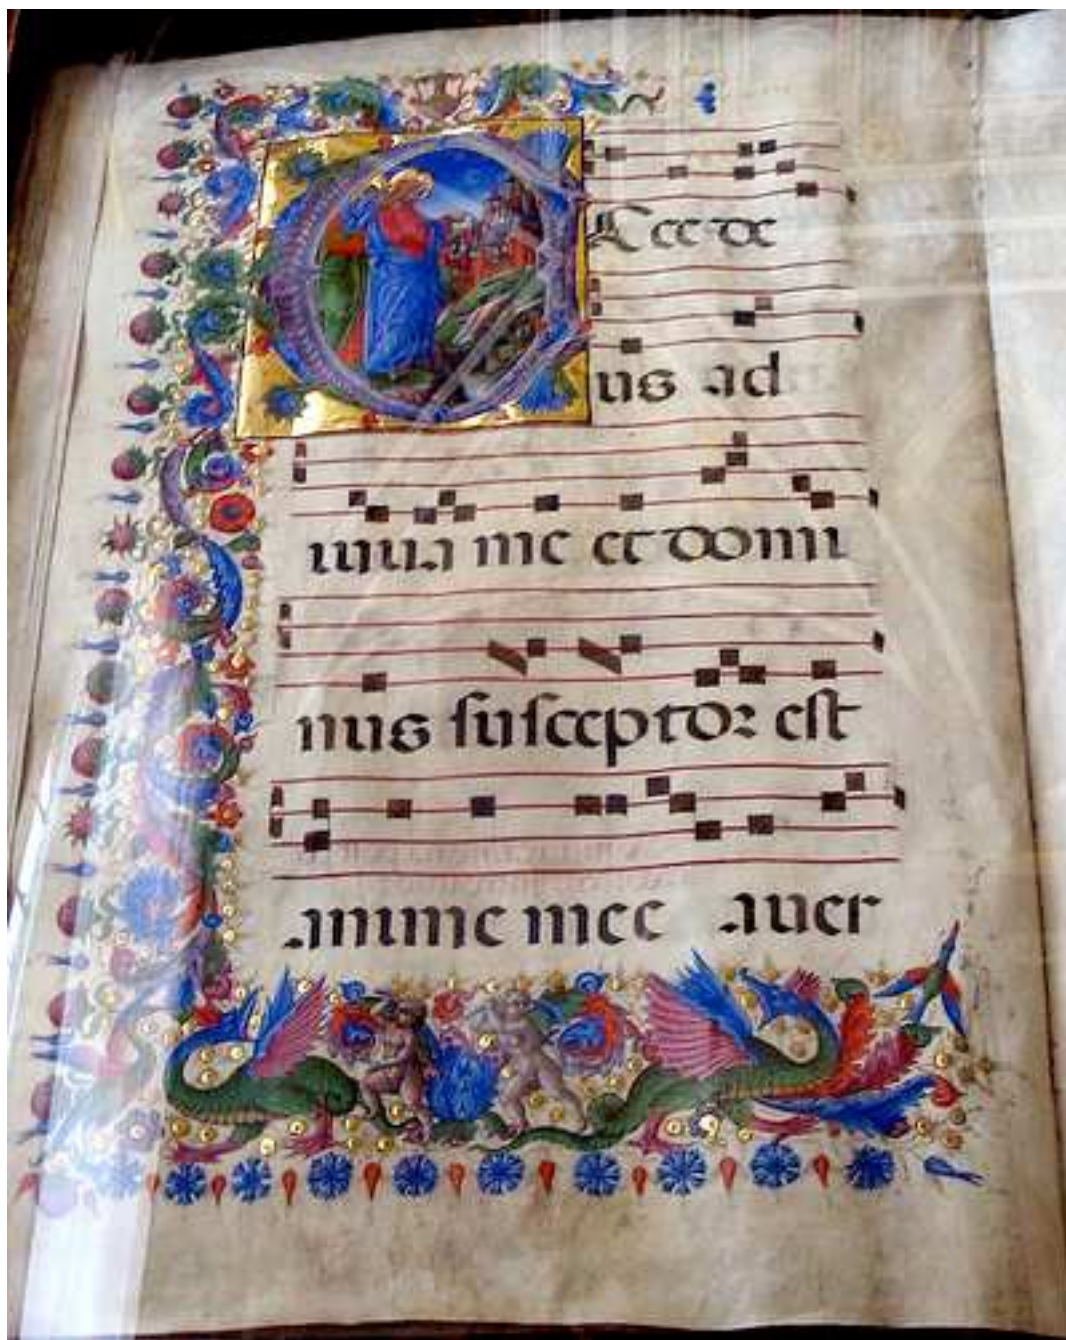 ECce de
us ad
iuua me et domi
nus susceptor est
anime mee auer